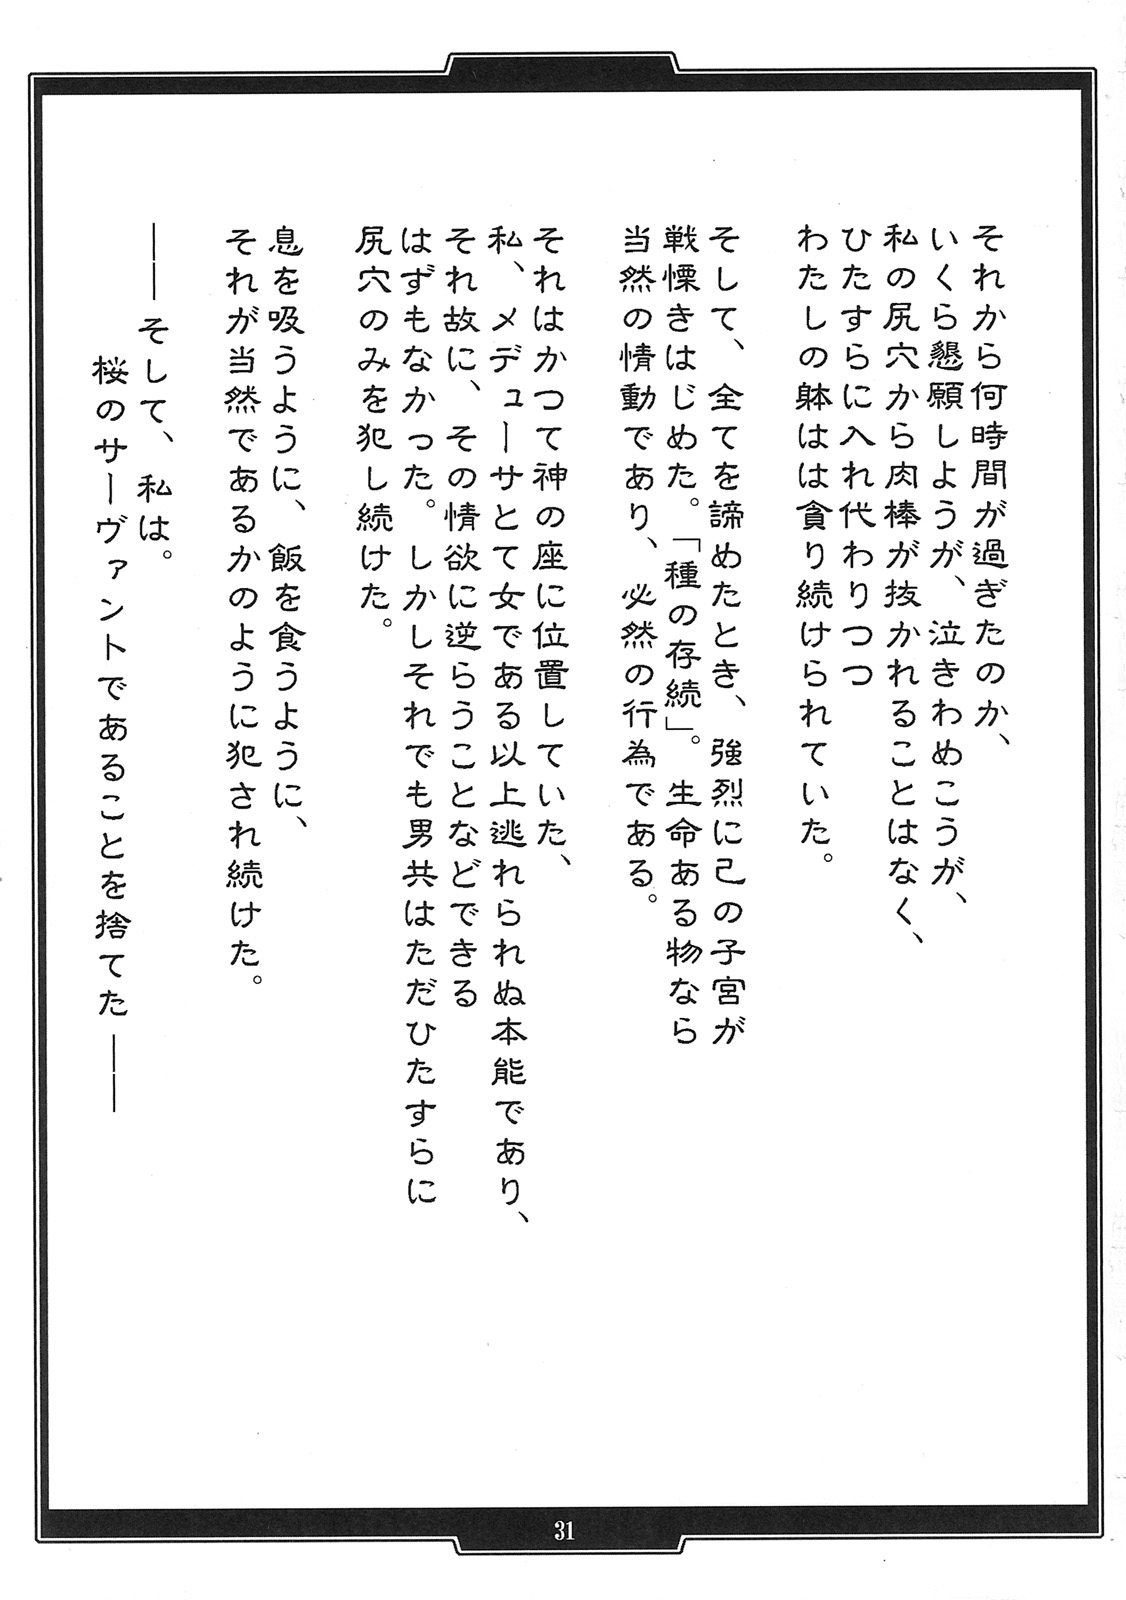 それから何時間が過ぎたのか、
いくら懇願しようが、泣きわめこうが、
私の尻穴から肉棒が抜かれることはなく、
ひたすらに入れ代わりつつ
わたしの躰はは貪り続けられていた。
そして、全てを諦めたとき、強烈に己の子宮が
戦慄きはじめた。「種の存続」。生命ある物なら
当然の情動であり、必然の行為である。
それはかつて神の座に位置していた、
私、メデューサとて女である以上逃れられぬ本能であり、
それ故に、その情欲に逆らうことなどできる
はずもなかった。しかしそれでも男共はただひたすらに
尻穴のみを犯し続けた。
息を吸うように、飯を食うように、
それが当然であるかのように犯され続けた。
――そして、私は。
桜のサーヴァントであることを捨てた――
31